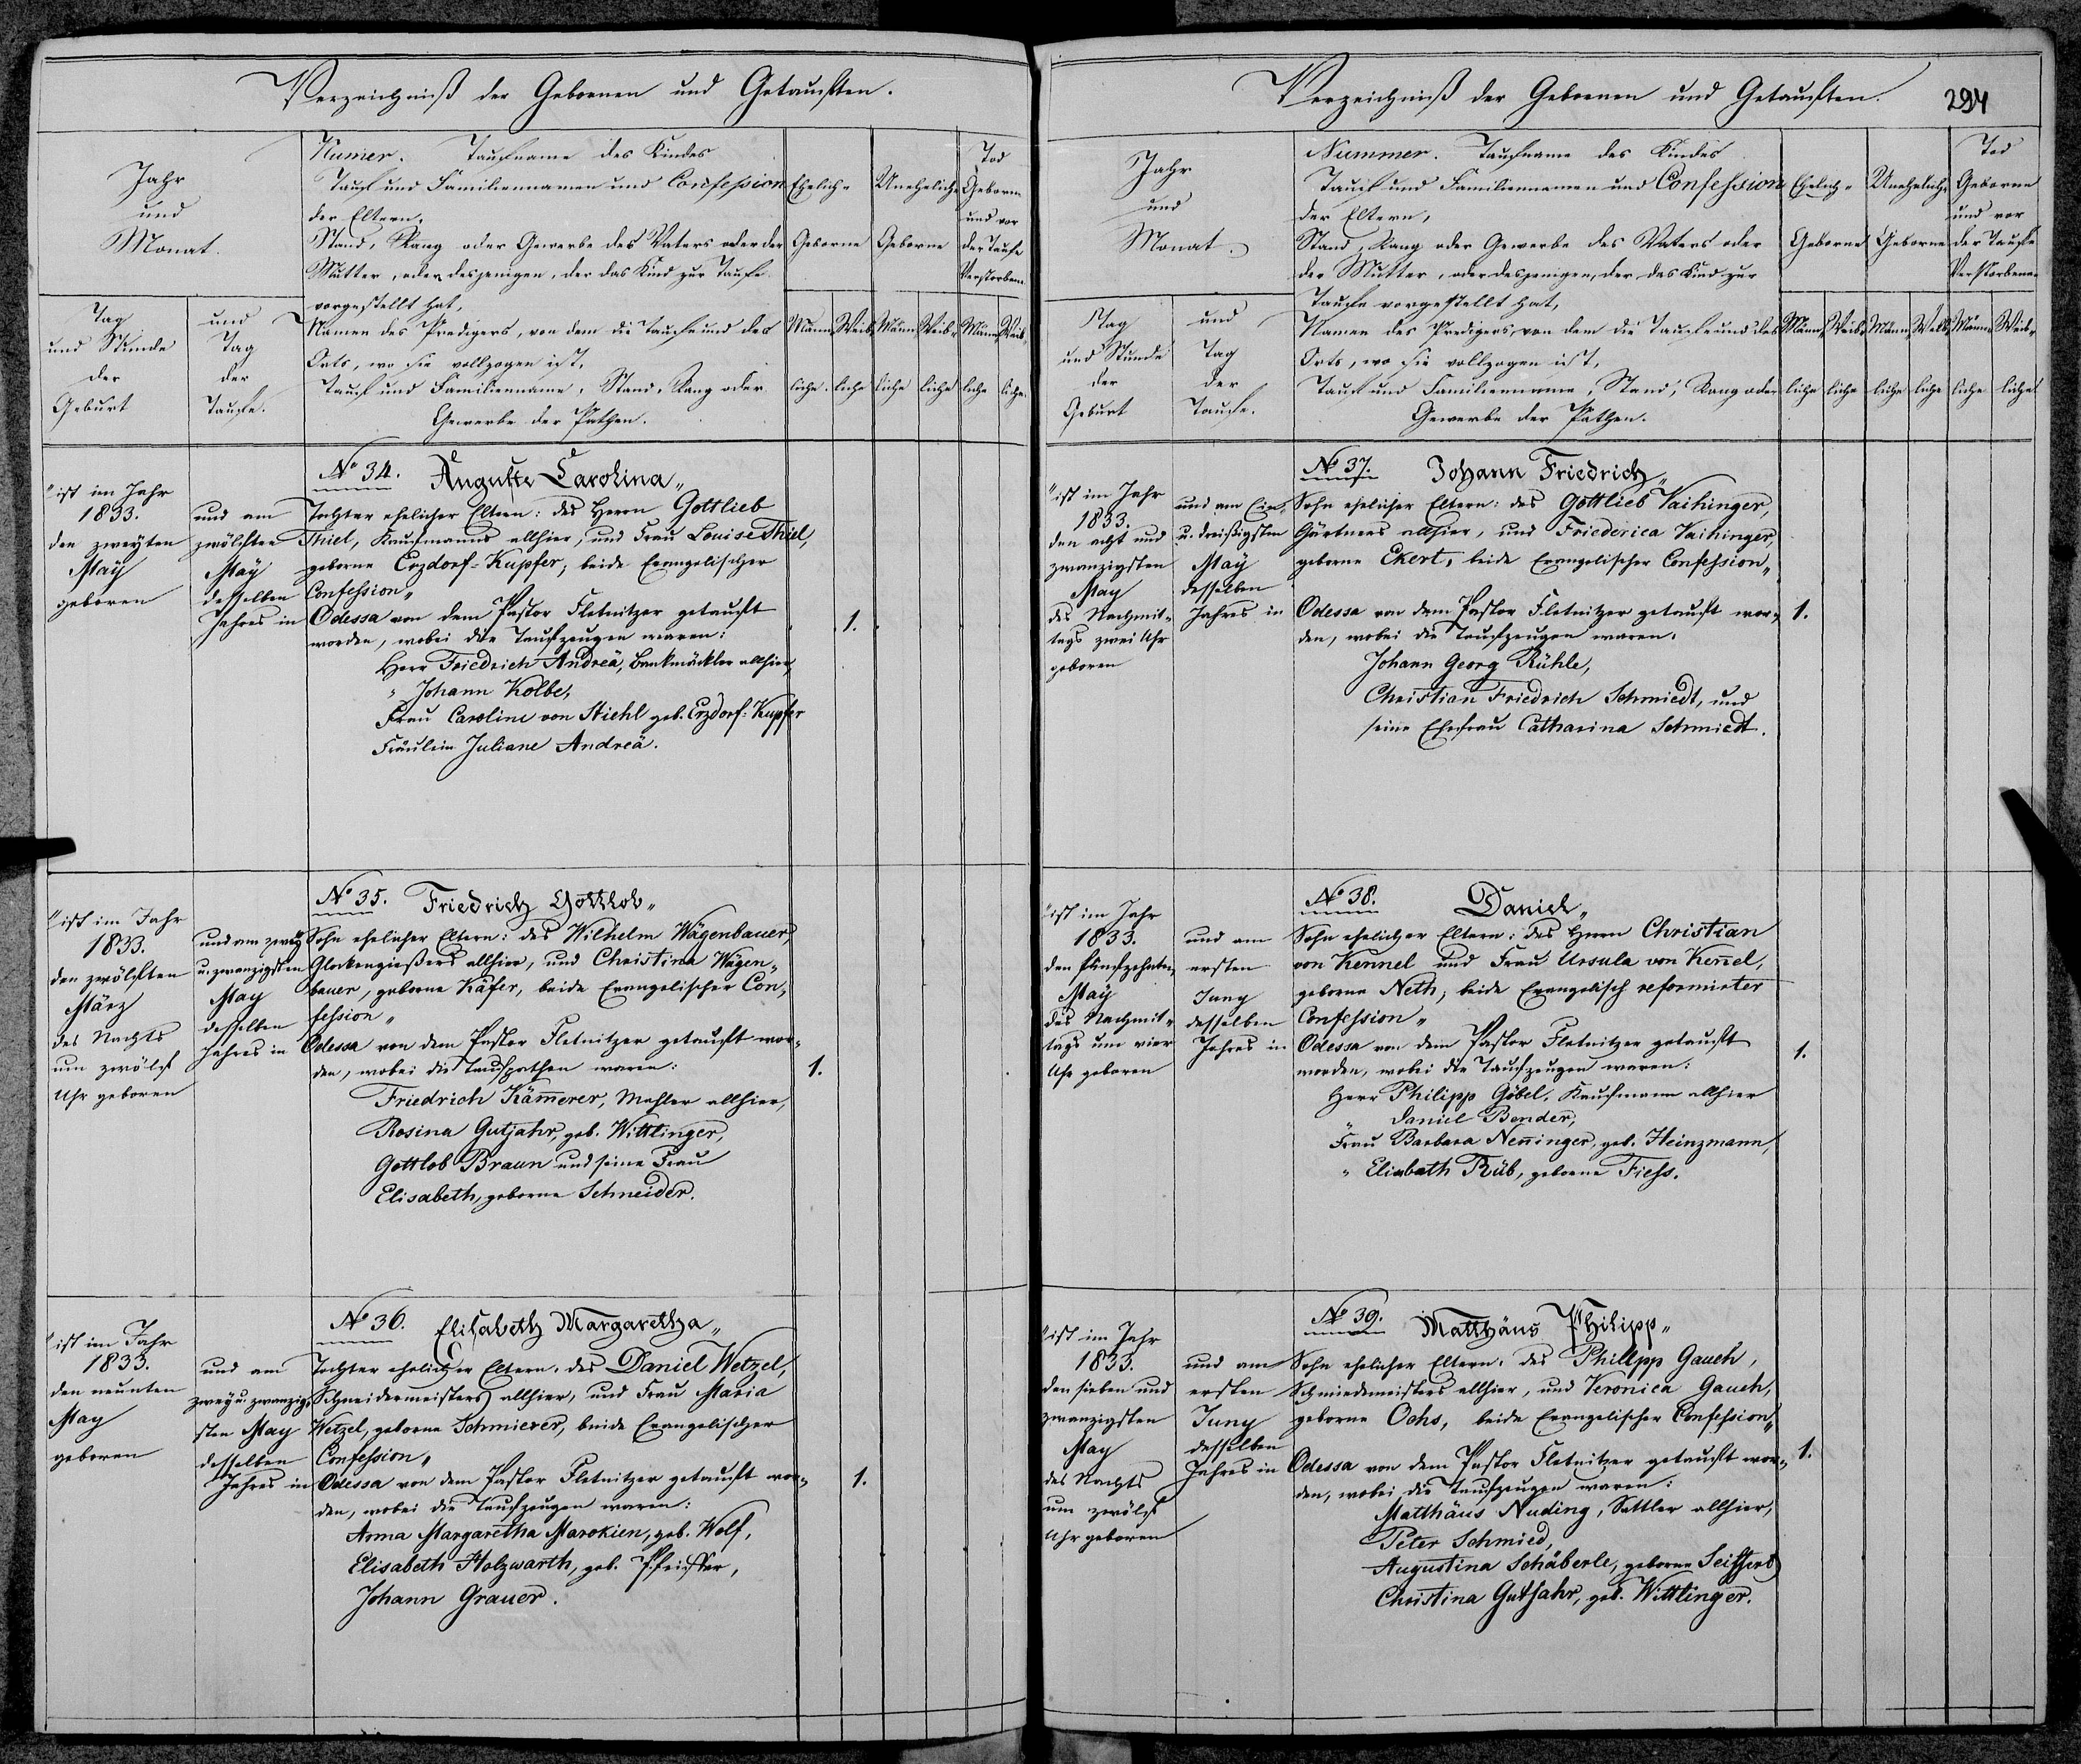 Verzeichniß der Gebornen und Getauften.
Jahr
und
Monat.
Tag
und Stunde
der
Geburt
und
Tag
der
Taufe.
Numer. Taufname des Kindes
Tauf und Familiennamen und Confession
der Eltern,
Stand, Rang oder Gewerbe des Vaters oder der
Mutter, oder desjenigen, der das Kind zur Taufe
vorgestellt hat,
Namen des Predigers, von dem die Taufe und des
Orts, wo sie vollzogen ist,
Tauf und Familienname, Stand, Rang oder
Gewerbe der Pathen.
Ehelich-
Geborne
Unehelich-
Geborne
Tod
Geborne
und vor
der Taufe
Verstorbene
Männ- Weib- Männ- Weib- Männ- Weib-
liche liche liche liche liche liche
"ist im Jahr
1833.
den zweyten
May
geboren
und am
zwölften
May
desselben
Jahres in
No 34. Auguste Carolina"
Tochter ehelicher Eltern: des Herrn Gottlieb
Thiel, Kaufmanns allhier, und Frau Louise Thiel,
geborne Erzdorf-Kupfer, beide Evangelischer
Confession"
Odessa von dem Pastor Fletnitzer getauft
worden, wobei die Taufzeugen waren:
Herr Friedrich Andreä, Bankmäckler allhier,
" Johann Kolbe,
Frau Caroline von Stiehl geb. Erzdorf-Kupfer
Fräulein Juliane Andreä.
1.
"ist im Jahr
1833.
den zwölften
März
des Nachts
um zwölf
Uhr geboren
und am zwey
u. zwanzigsten
May
desselben
Jahres in
No 35. Friedrich Gottlob"
Sohn ehelicher Eltern: des Wilhelm Wägenbauer,
Glockengießers allhier, und Christina Wägen-
bauer, geborne Käfer, beide Evangelischer Con-
fession"
Odessa von dem Pastor Fletnitzer getauft wor-
den, wobei die Taufpathen waren:
Friedrich Kämerer, Mahler allhier,
Rosina Gutjahr, geb. Wittlinger,
Gottlob Braun und seine Frau
Elisabeth, geborne Schneider.
1.
"ist im Jahr
1833.
den neunten
May
geboren
und am
zwey u. zwanzig-
sten May
desselben
Jahres in
No 36. Elisabeth Margaretha"
Tochter ehelicher Eltern: des Daniel Wetzel,
Schneidermeisters allhier, und Frau Maria
Wetzel, geborne Schmierer, beide Evangelischer
Confession"
Odessa von dem Pastor Fletnitzer getauft wor-
den, wobei die Taufzeugen waren:
Anna Margaretha Marokien, geb. Wolf,
Elisabeth Holzwarth, geb. Pfeiffer,
Johann Grauer.
1.
Verzeichniß der Gebornen und Getauften.
294
Jahr
und
Monat.
Tag
und Stunde
der
Geburt
und
Tag
der
Taufe.
Nummer. Taufname des Kindes
Tauf und Familiennamen und Confession
der Eltern,
Stand, Rang oder Gewerbe des Vaters oder
der Mutter, oder desjenigen, der das Kind zur
Taufe vorgestellt hat,
Namen des Predigers, von dem die Taufe und des
Orts, wo sie vollzogen ist,
Tauf und Familienname, Stand, Rang oder
Gewerbe der Pathen.
Ehelich-
Geborne
Unehelich-
Geborne
Tod
Geborne
und vor
der Taufe
Verstorbene
Männ- Weib- Männ- Weib- Männ- Weib-
liche liche liche liche liche liche
"ist im Jahr
1833.
den acht und
zwanzigsten
May
des Nachmit-
tags zwei Uhr
geboren
und am Ein-
u. dreißigsten
May
desselben
Jahres in
No 37. Johann Friedrich"
Sohn ehelicher Eltern: des Gottlieb Vaihinger,
Gärtners allhier, und Friederica Vaihinger,
geborne Ekert, beide Evangelischer Confession"
Odessa von dem Pastor Fletnitzer getauft wor-
den, wobei die Taufzeugen waren.
Johann Georg Rühle,
Christian Friedrich Schmiedt, und
seine Ehefrau Catharina Schmiedt.
1.
"ist im Jahr
1833.
den fünfzehnten
May
des Nachmit-
tags um vier
Uhr geboren
und am
ersten
Juny
desselben
Jahres in
No 38. Daniel"
Sohn ehelicher Eltern: des Herrn Christian
von Kennel und Frau Ursula von Kennel,
geborne Neth, beide Evangelisch reformirter
Confession"
Odessa von dem Pastor Fletnitzer getauft
worden, wobei die Taufzeugen waren:
Herr Philipp Göbel, Kaufmann allhier
" Daniel Bender,
Frau Barbara Nenninger, geb. Heinzmann,
" Elisabath Rüb, geborne Fiess.
1.
"ist im Jahr
1833.
den sieben und
zwanzigsten
May
des Nachts
um zwölf
Uhr geboren
und am
ersten
Juny
desselben
Jahres in
No 39. Matthäus Philipp"
Sohn ehelicher Eltern: des Philipp Gauch,
Schmiedmeisters allhier, und Veronica Gauch,
geborne Ochs, beide Evangelischer Confession"
Odessa von dem Pastor Fletnitzer getauft wor-
den, wobei die Taufzeugen waren:
Matthäus Nuding, Sattler allhier,
Peter Schmied,
Augustina Schäberle, geborne Seiffert
Christina Gutjahr, geb. Wittlinger.
1.